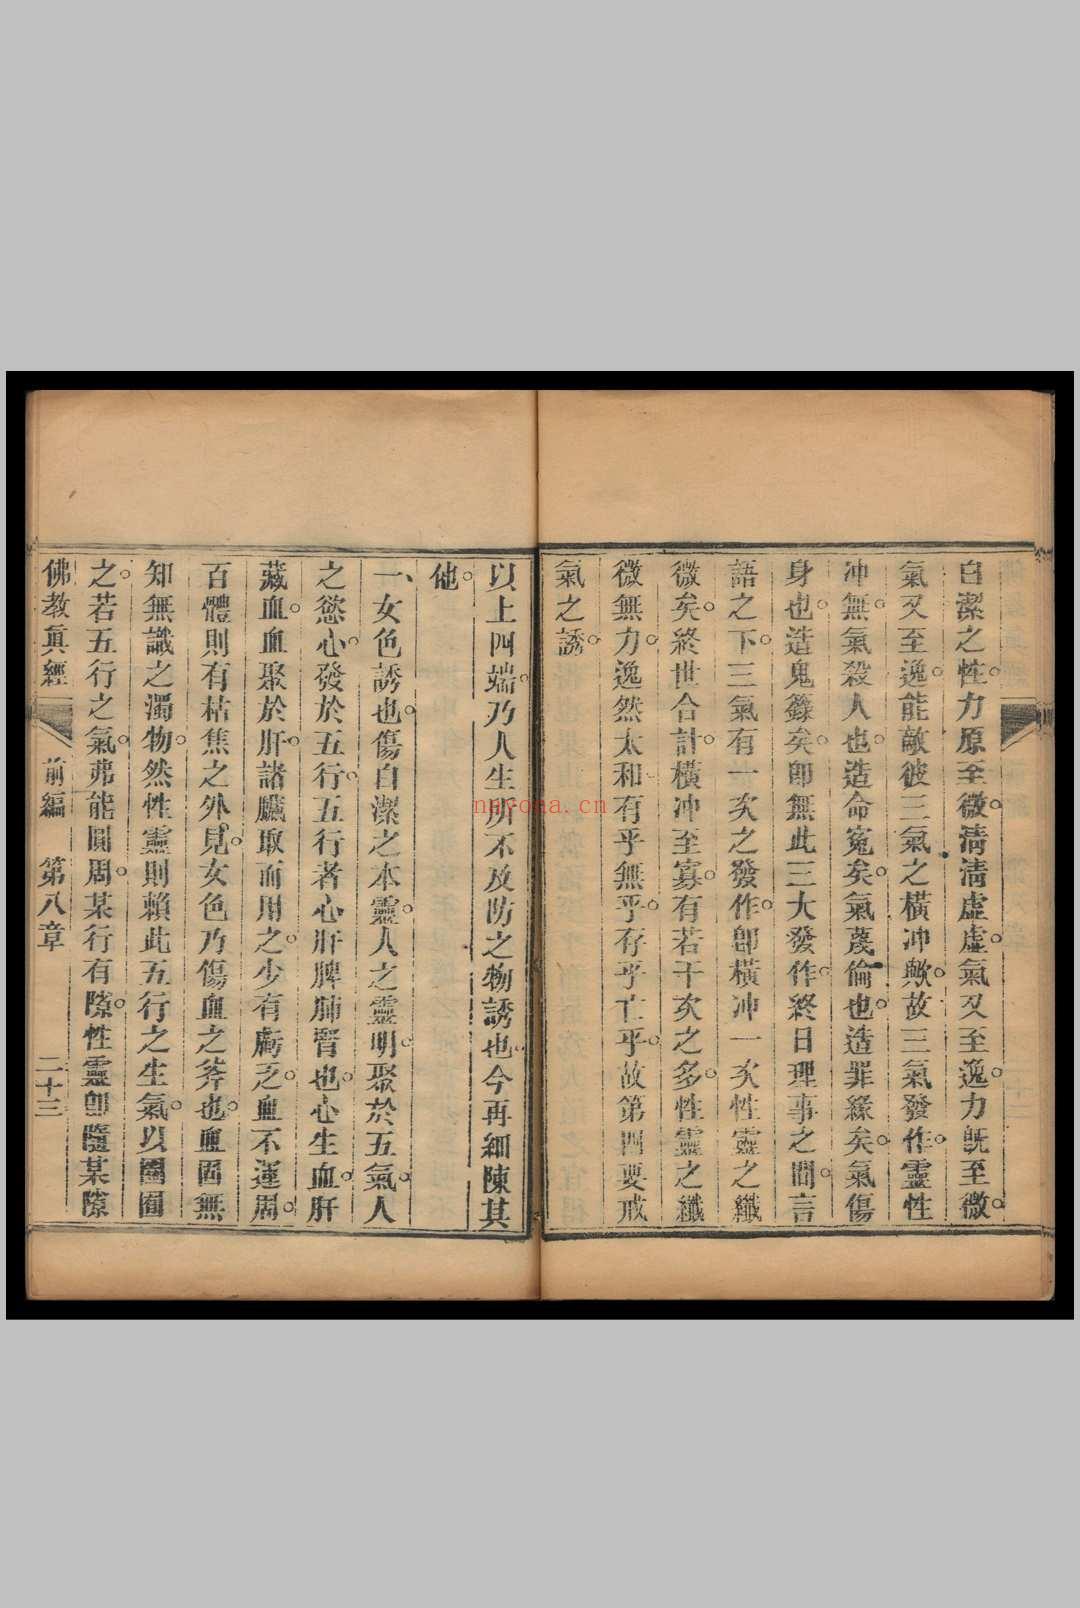 自潔之性力原至微清清虛虛氣又至逸力旣至微
氣又至逸能敵彼三氣之橫冲歟故三氣發作靈性
冲無氣殺人也造命寃矣氣蔑倫也造罪緣矣氣傷
身也造鬼籙矣卽無此三大發作終日理事之間言
語之下三氣有一次之發作卽橫冲一次性靈之纖
微矣終世合計橫冲至寡有若干次之多性靈之纖
微無力逸然太和有乎無乎存乎亡乎故第四要戒
氣之誘
以上四端乃人生所不及防之物誘也今再細陳其
他
一女色誘也傷自潔之本靈人之靈明聚於五氣人
之慾心發於五行五行者心肝脾肺腎也心生血肝
藏血血聚於肝諸臟取而用之少有虧乏血不運周
百體則有枯焦之外見女色乃傷血之斧也血固無
知無識之濁物然性靈則賴此五行之生氣以團圓
之若五行之氣弗能圓周某行有隙性靈卽隨某隙
佛教眞經 前編 第八章 二十三
nayona.cn